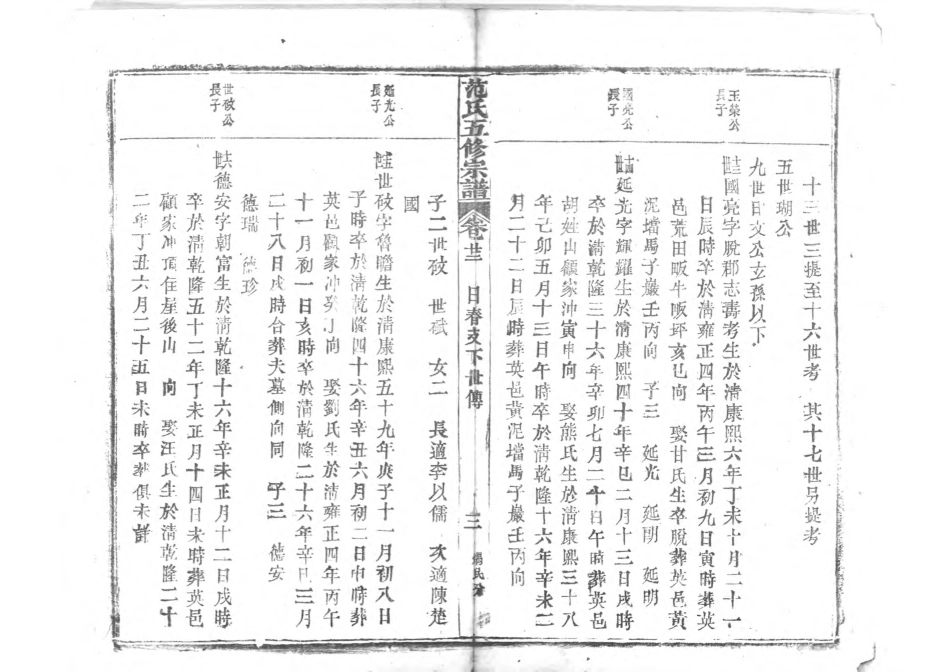 十三世三提至十六世考 其十七世另提考
五世瑚公
九世日文公玄孫以下
玉榮公長子
國亮字脫郡志壽考生於清康熙六年丁未十月二十一
日辰時卒於清雍正四年丙午三月初九日寅時葬英
邑荒田畈牛眠环亥巳向 娶甘氏生卒脫葬英邑黃
泥壋馬子巖壬丙向 子三 延光 延剛 延明
國亮公長子
延光字輝耀生於清康熙四十年辛巳二月十三日戌時
卒於清乾隆三十六年辛卯七月二十日午時葬英邑
胡姓山顧家冲寅申向 娶熊氏生於清康熙三十八
年己卯五月十三日午時卒於清乾隆十六年辛未二
月二十二日辰時葬英邑黃泥壋馬子巖壬丙向
范氏五修宗譜 卷廿三 日春支下世傳 三
子二世䂻 世珷 女二 長適李以儒 次適陳楚
國
延光公長子
世䂻字魯瞻生於清康熙五十九年庚子十一月初八日
子時卒於清乾隆四十六年辛丑六月初二日申時葬
英邑顧家冲癸丁向 娶劉氏生於清雍正四年丙午
十一月初一日亥時卒於清乾隆二十六年辛巳三月
二十八日戌時合葬夫墓側向同 子三 德安
德瑞 德珍
世䂻公長子
德安字朝富生於清乾隆十六年辛未正月十二日戌時
卒於清乾隆五十二年丁未正月十四日未時葬英邑
顧家冲頂住屋後山 向 娶汪氏生於清乾隆二十
二年丁丑六月二十五日未時卒葬俱未詳